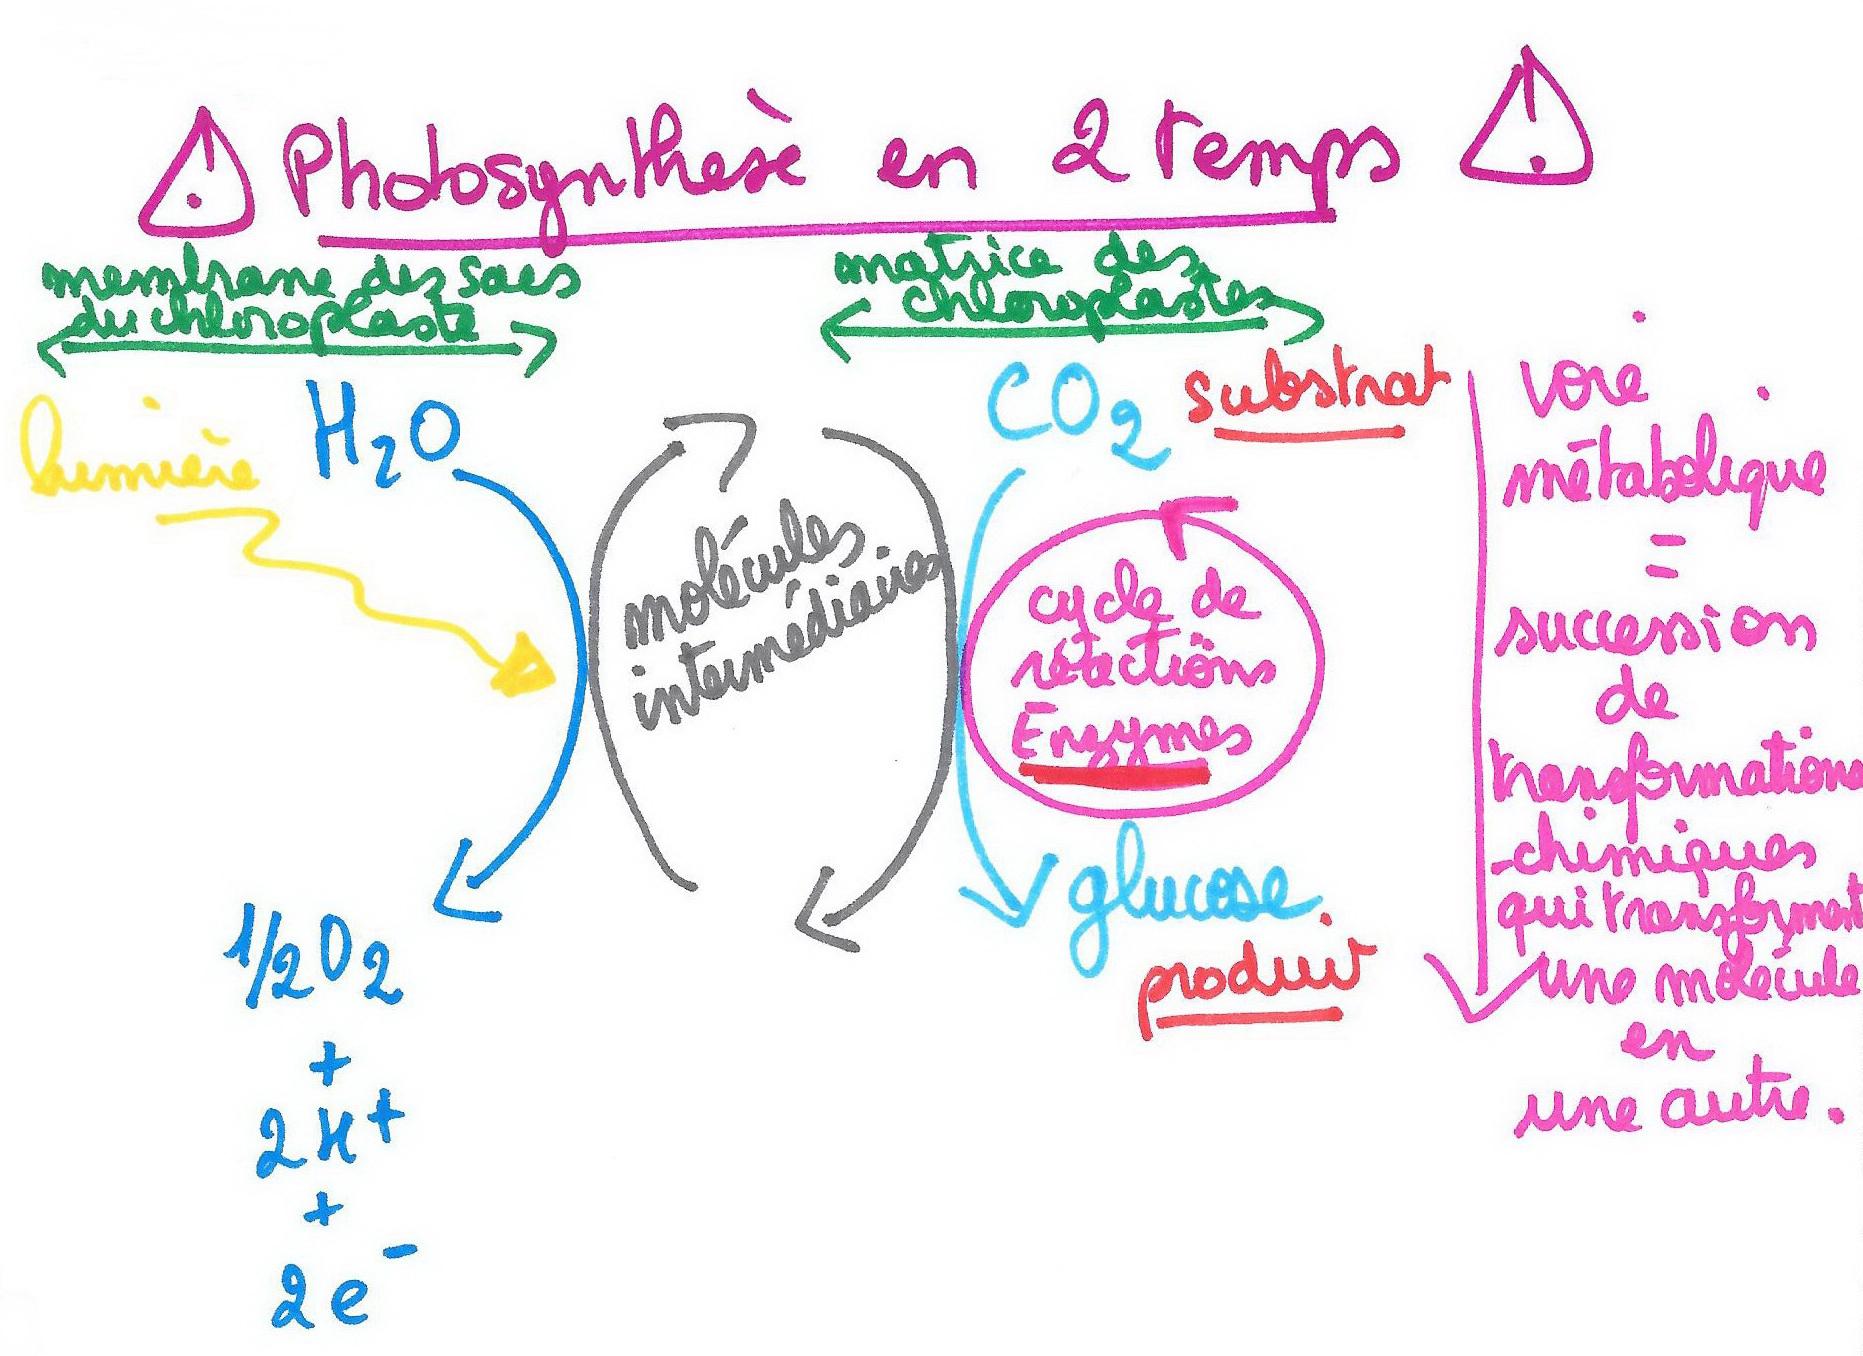 Photosynthèse en 2 temps
membrane des sacs
du chloroplaste
matrice des
chloroplastes
lumière
H2O
molécules
intermédiaires
1/2O2
+
2H+
+
2e-
CO2 substrat
cycle de
réactions
Enzymes
glucose
produit
voie
métabolique
=
succession
de
transformations
chimiques
qui transforment
une molécule
en
une autre.